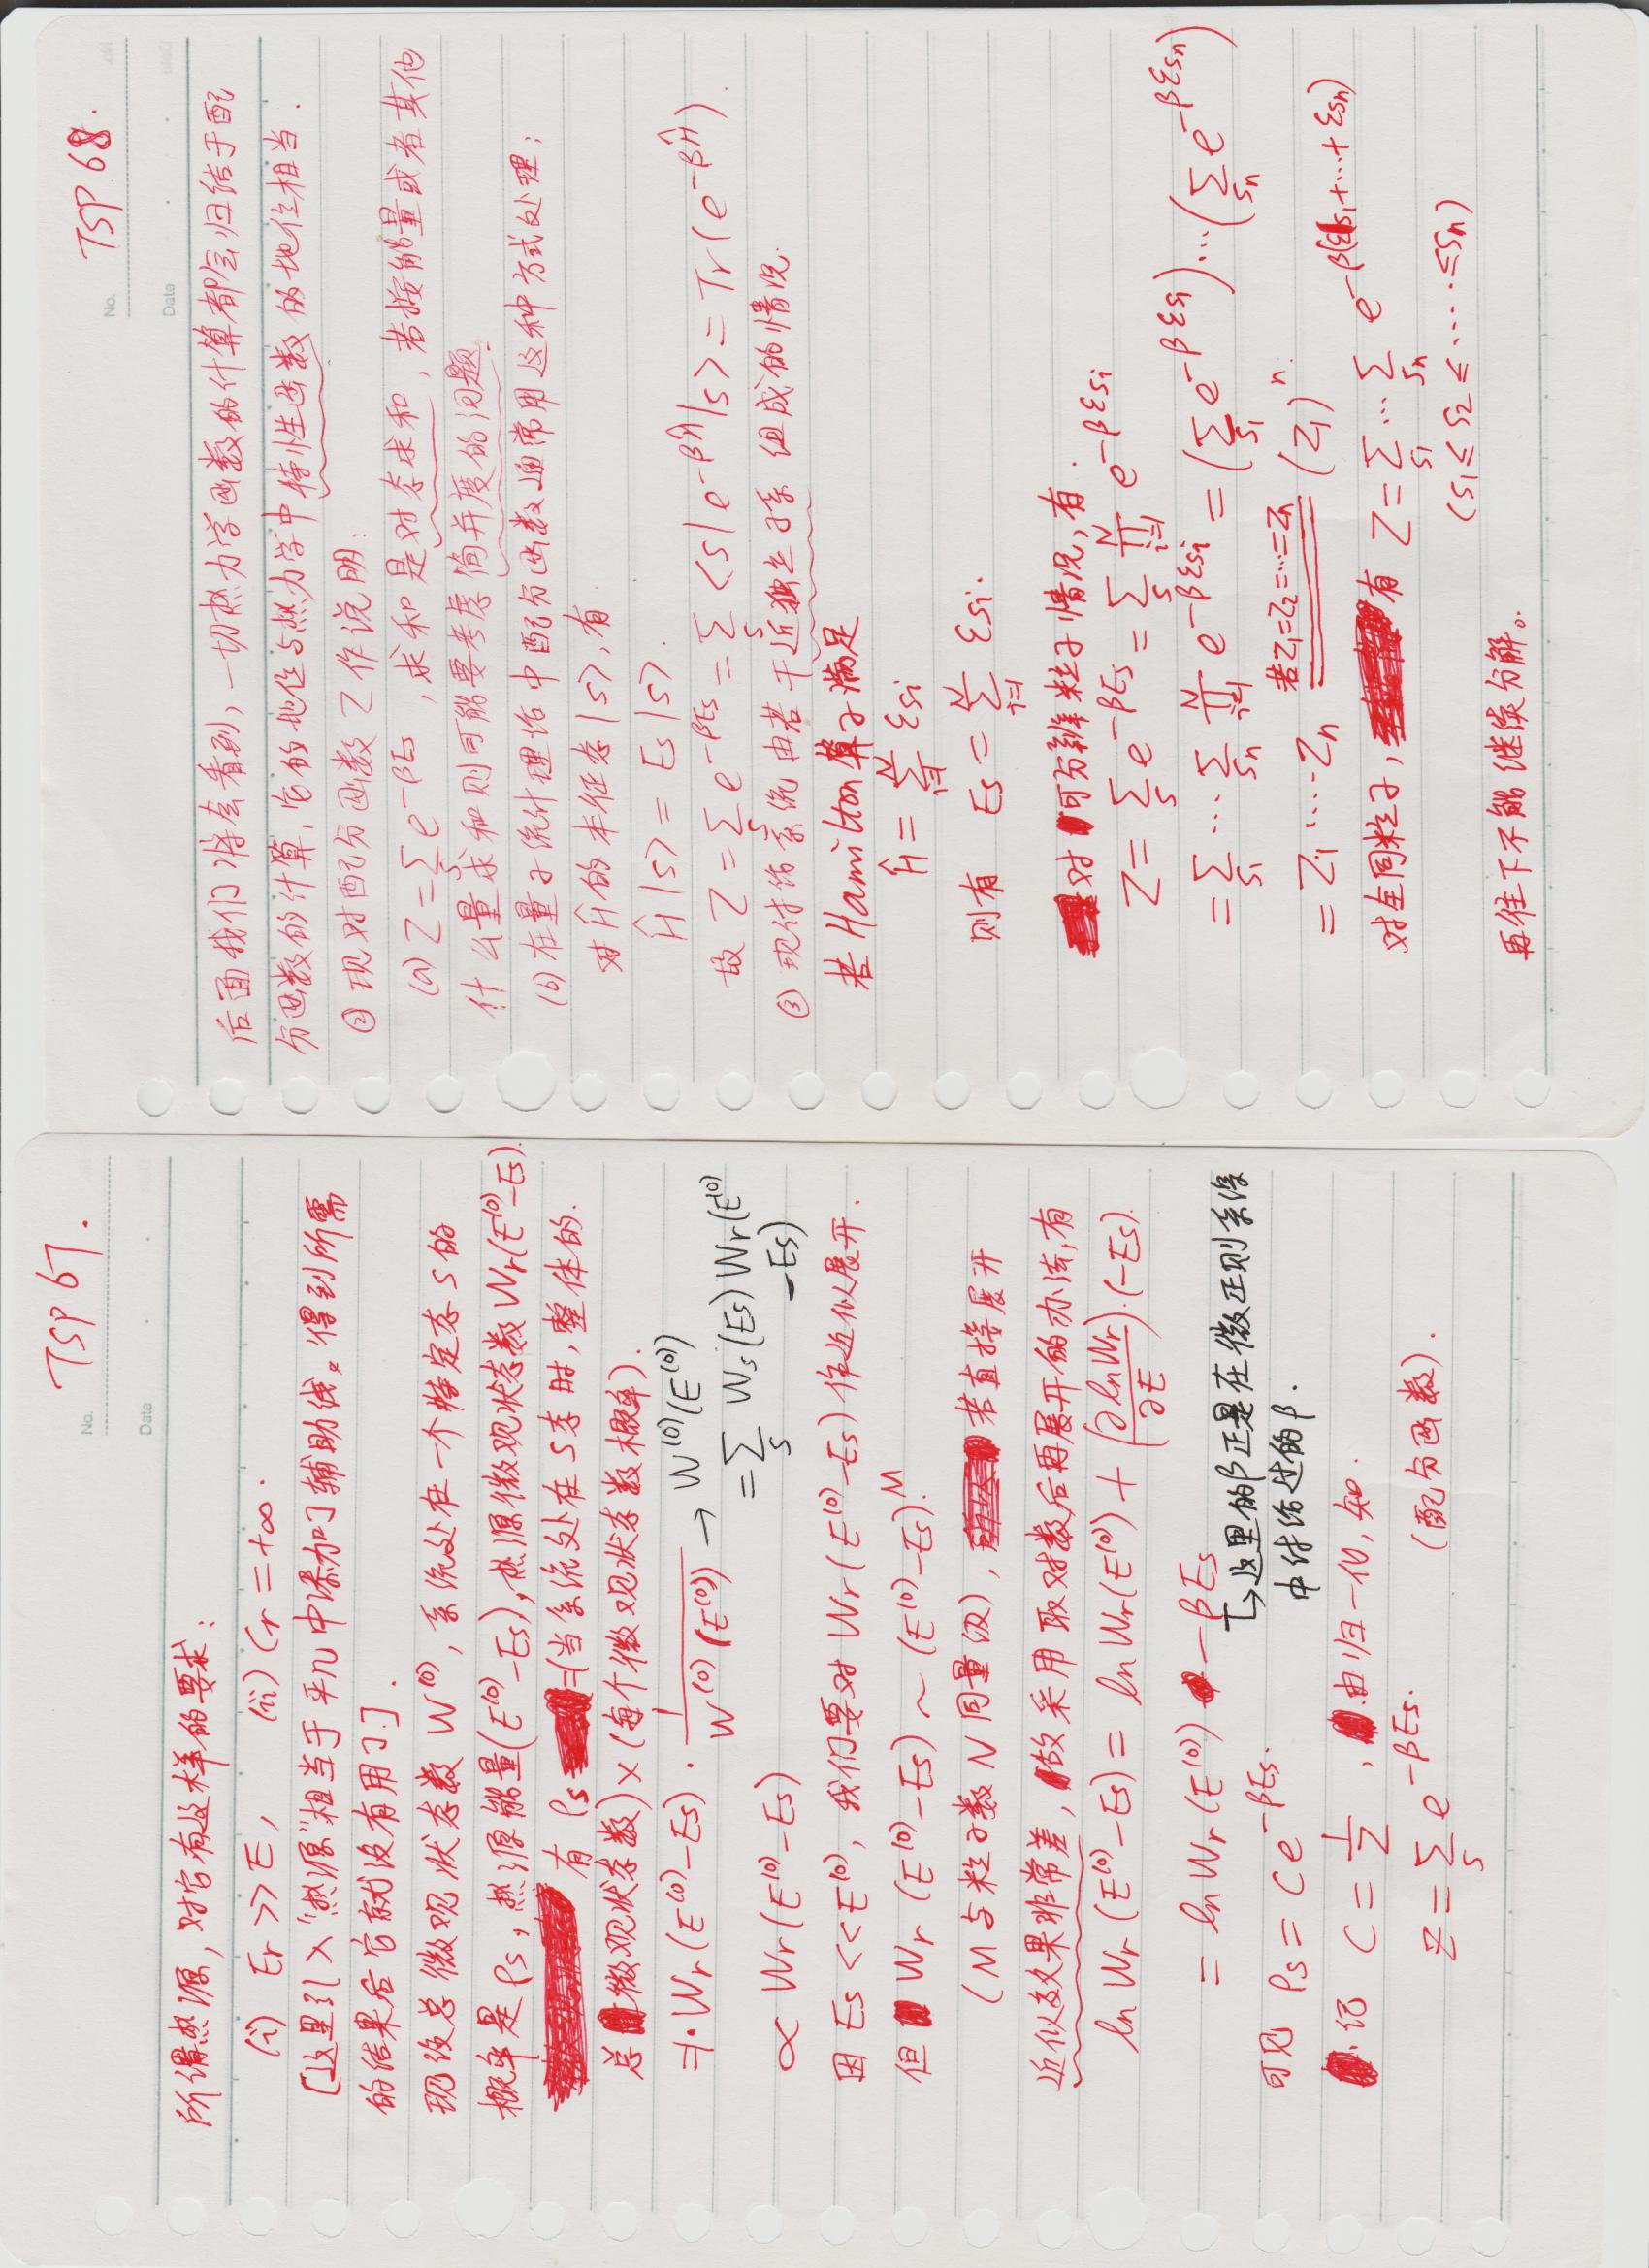 TSP 67.
No.
Date
所谓热源,对它有这样的要求:
(i) Er >> E, (ii) Cr = +∞.
[这里引入“热源”相当于平几中添加了辅助线。得到所需
的结果后它就没有用了.].
现设总微观状态数 W⁽⁰⁾, 系统处在一个特定态 s 的
概率是 ρs, 热源能量(E⁽⁰⁾-Es), 热源微观状态数 Wr(E⁽⁰⁾-Es).
有 ρs =(当系统处在 S态时,整体的.
总微观状态数)×(每个微观状态数概率).
=1·Wr(E⁽⁰⁾-Es)·1/W⁽⁰⁾(E⁽⁰⁾) → W⁽⁰⁾(E⁽⁰⁾)
=∑s Ws(Es)Wr(E⁽⁰⁾
-Es)
∝ Wr(E⁽⁰⁾-Es)
因 Es <<E⁽⁰⁾, 我们要对 Wr(E⁽⁰⁾-Es) 作近似展开.
但 Wr (E⁽⁰⁾-Es) ~ (E⁽⁰⁾-Es).ᴹ
(M与粒子数N同量级), 若直接展开
近似效果非常差, 故采用取对数后再展开的办法,有
ln Wr (E⁽⁰⁾-Es) = ln Wr(E⁽⁰⁾) + (∂lnWr/∂E)·(-Es).
= ln Wr (E⁽⁰⁾) -βEs
↳这里的β正是在微正则系综
中讨论过的β.
可见 ρs = Ce^(-βEs).
记 C = 1/Z , 由归一化,知.
Z = ∑s e^(-βEs). (配分函数).
TSP 68.
No.
Date
后面我们将会看到, 一切热力学函数的计算都会归结于配
分函数的计算, 它的地位与热力学中特性函数的地位相当.
② 现对配分函数 Z 作说明:
(a) Z=∑s e^(-βEs) ,求和是对态求和, 若按能量或者其他
什么量求和则可能要考虑简并度的问题.
(b) 在量子统计理论中配分函数通常用这种方式处理;
对Ĥ的本征态|s>,有
Ĥ|s> = Es|s>.
故 Z=∑s e^(-βEs)=∑s <s|e^(-βĤ)|s> = Tr(e^(-βĤ)).
③ 现讨论系统由若干近独立子系组成的情况.
若Hamilton算子满足
Ĥ = ∑(i=1→N) εsi
则有 Es = ∑(i=1→N) εsi.
对可分辨粒子情况,有.
Z= ∑s e^(-βEs) = ∑s ∏(i=1→N) e^(-βεsi)
=∑s₁ ··· ∑sₙ ∏(i=1→N) e^(-βεsi) = (∑s₁ e^(-βεs₁))···(∑sₙ e^(-βεsₙ))
= Z₁ ····· Zₙ 若Z₁=Z₂=···=Zₙ (Z₁)ⁿ.
对全同粒子, 有 Z=∑s₁···∑sₙ e^(-β(εs₁+···+εsₙ))
(s₁≤ s₂ ≤ ····· ≤sₙ)
再往下不能继续分解。